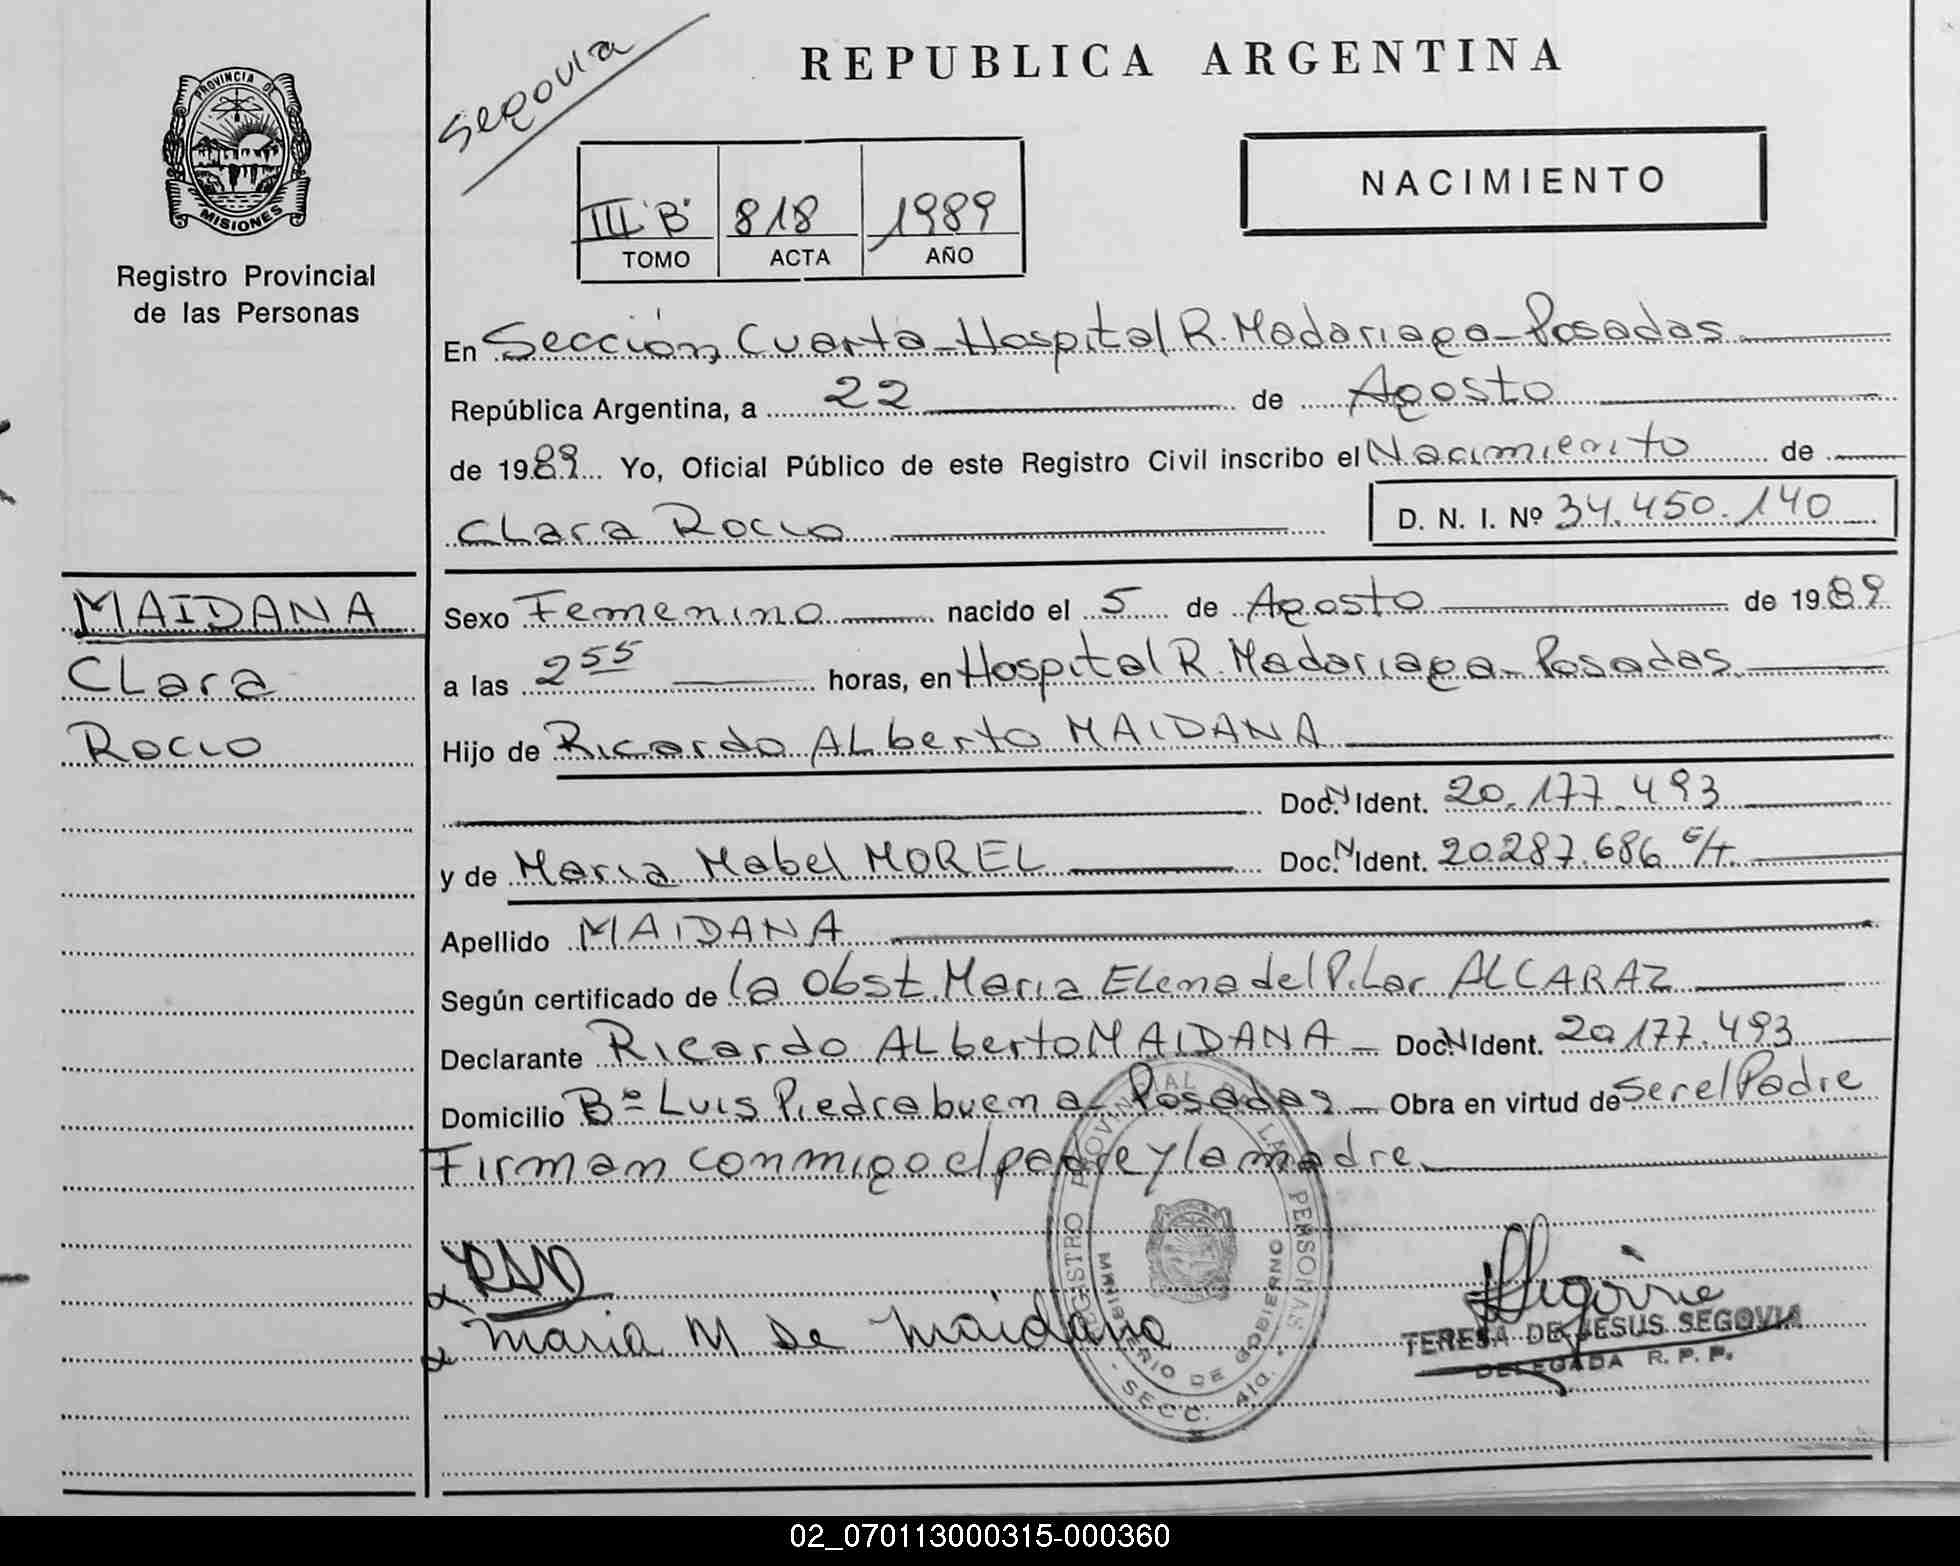 Segovia
REPUBLICA ARGENTINA
PROVINCIA DE
MISIONES
Registro Provincial
de las Personas
NACIMIENTO
III "B" 818 1989
TOMO ACTA AÑO
En Sección Cuarta - Hospital R. Madariaga - Posadas
República Argentina, a 22 de Agosto
de 1989 Yo, Oficial Público de este Registro Civil inscribo el Nacimiento de
Clara Rocio D. N. I. Nº 34.450.140
MAIDANA
Clara
Rocio
Sexo Femenino nacido el 5 de Agosto de 1989
a las 2 55 horas, en Hospital R. Madariaga - Posadas
Hijo de Ricardo Alberto MAIDANA
Doc. N Ident. 20.177.493
y de Maria Mabel MOREL Doc. N Ident. 20.287.686 C/T.
Apellido MAIDANA
Según certificado de la Obst. Maria Elena del Pilar ALCARAZ
Declarante Ricardo Alberto MAIDANA - Doc. N Ident. 20.177.493
Domicilio Bº Luis Piedrabuena - Posadas - Obra en virtud de ser el Padre
Firman conmigo el padre y la madre
Maria M de Maidana
REGISTRO PROVINCIAL LAS PERSONAS
MINISTERIO DE GOBIERNO
SECC. 4ta.
Segovia
TERESA DE JESUS SEGOVIA
DELEGADA R. P. P.
02_070113000315-000360